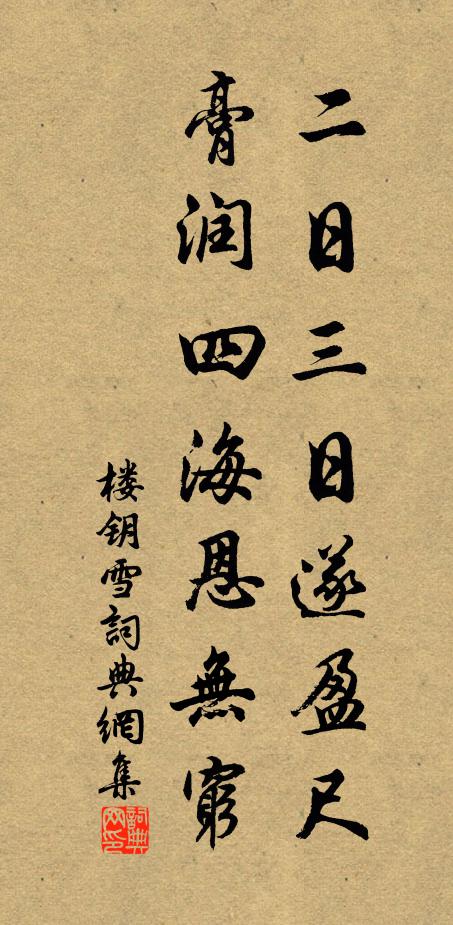 二日三日遂盈尺
膏润四海恩無窮
楼钥雪詞典網集
詞典網印